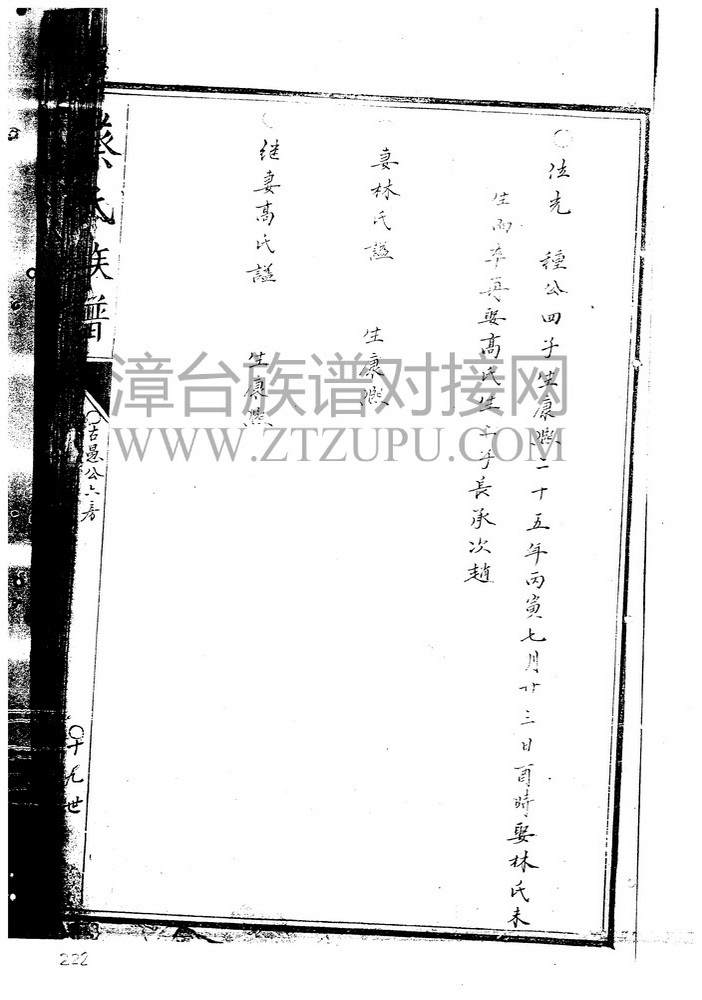 〇位光 種公四子生康熙二十五年丙寅七月廿三日酉時娶林氏未
生而卒再娶高氏生二子長承次趙
妻林氏謚 生康熙
继妻高氏謚 生康熙
蔡氏族譜
〇古愚公六房
〇十九世
漳台族谱对接网
WWW.ZTZUPU.COM
222